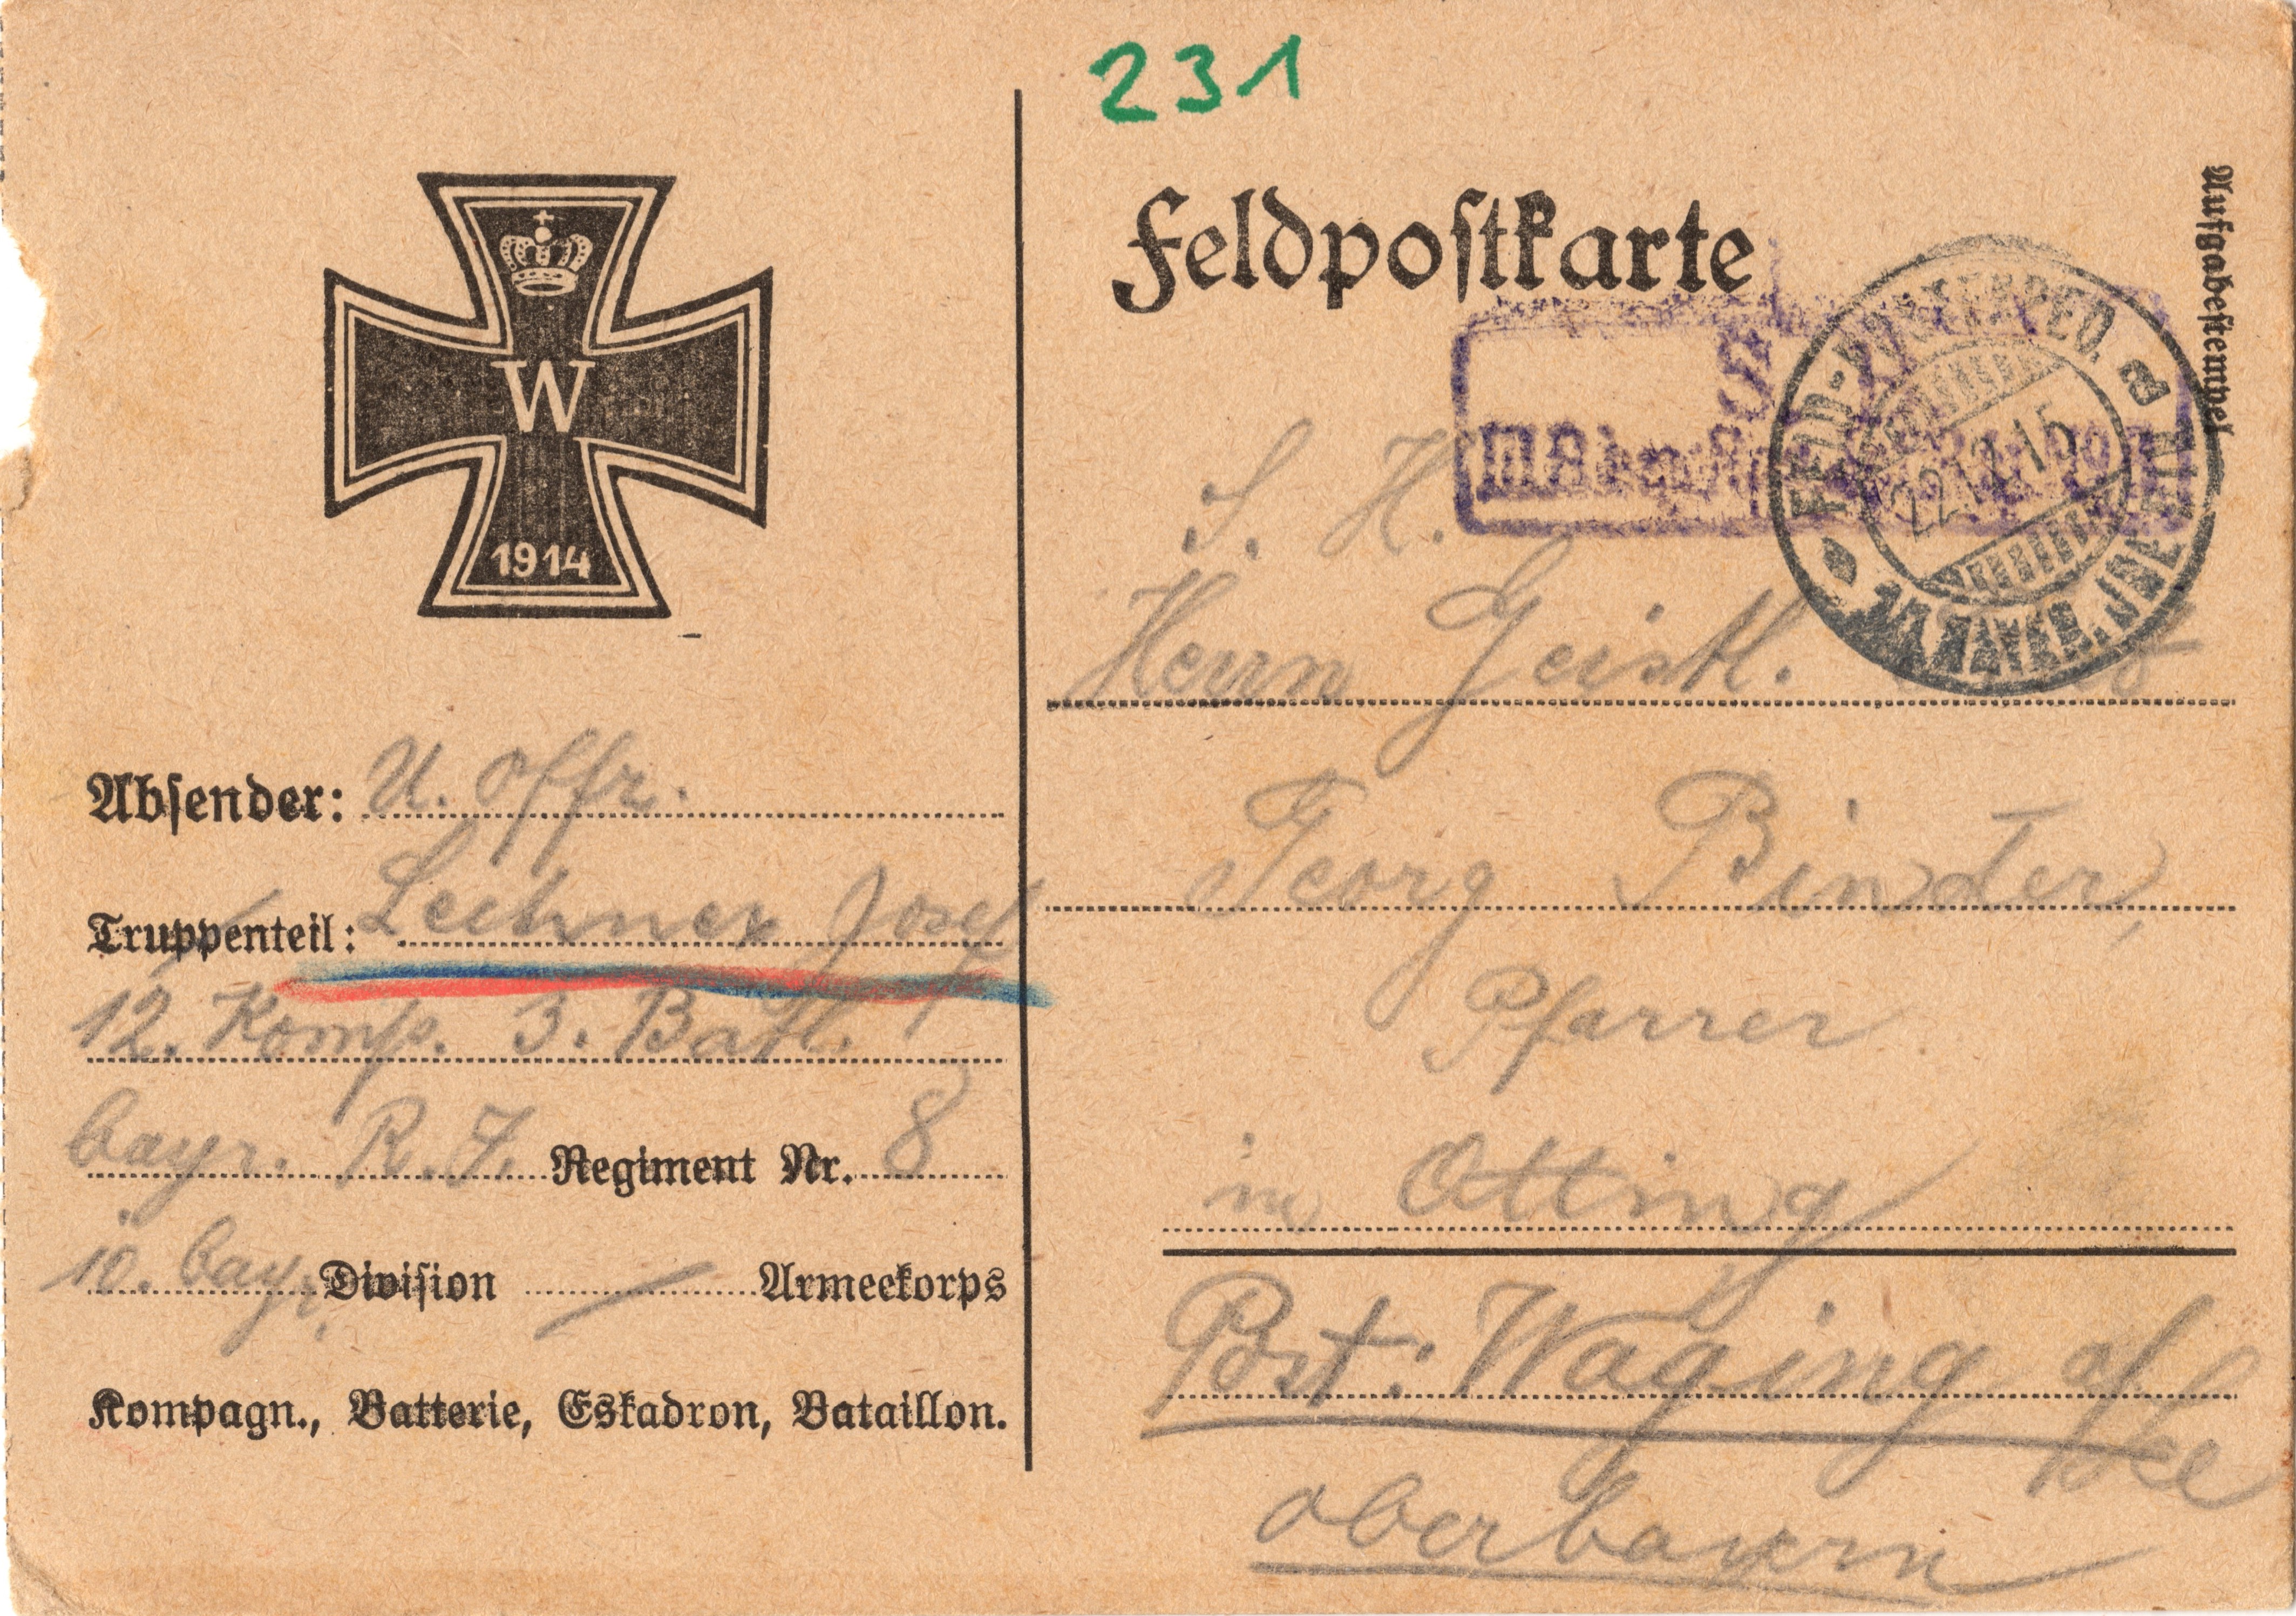 231
Feldpostkarte
Aufgabestempel
W
1914
FELD-POSTEXPED. a
22. 15
BAYER. INF. DIV.
S. H.
Herrn Geistl.
Georg Binder,
Pfarrer
in Otting
Post: Waging a/See
Oberbayern
Absender: U. Offr.
Truppenteil: Leitner Josef
12. Komp. 3. Batl.
bayr. R. I. Regiment Nr. 8
10. bayr. Division Armeekorps
Kompagn., Batterie, Eskadron, Bataillon.